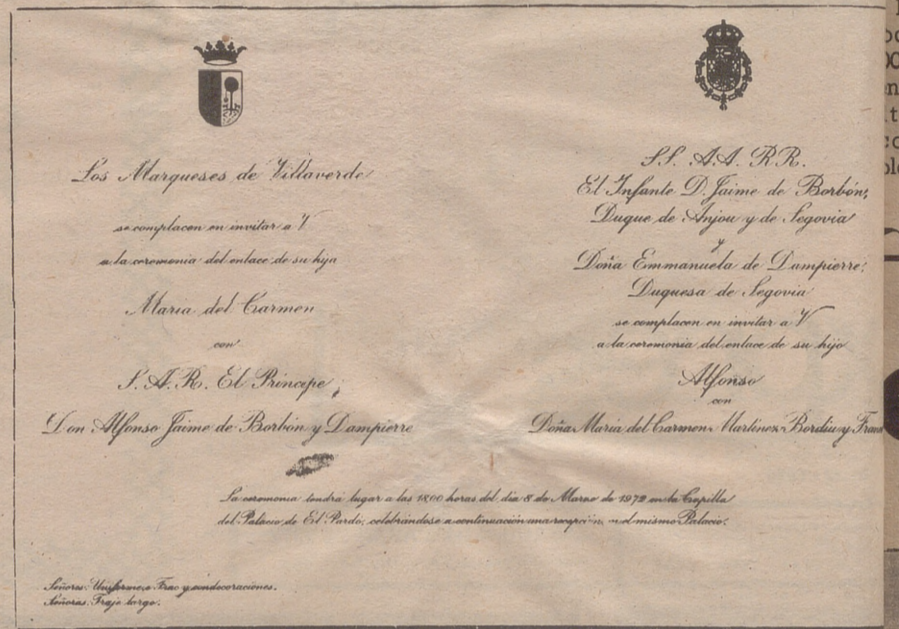 Los Marqueses de Villaverde
se complacen en invitar a V
a la ceremonia del enlace de su hija
María del Carmen
con
S. A. R. El Príncipe
Don Alfonso Jaime de Borbón y Dampierre
SS. A.A. R.R.
El Infante D. Jaime de Borbón,
Duque de Anjou y de Segovia
y
Doña Emmanuela de Dampierre,
Duquesa de Segovia
se complacen en invitar a V
a la ceremonia del enlace de su hijo
Alfonso
con
Doña María del Carmen Martínez-Bordiu y Franco
La ceremonia tendrá lugar a las 18,00 horas del día 8 de Marzo de 1972 en la Capilla
del Palacio de El Pardo, celebrándose a continuación una recepción en el mismo Palacio.
Señores: Uniforme o Frac y condecoraciones.
Señoras: Traje largo.